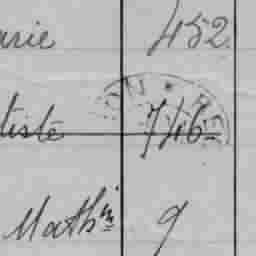 arie 452
tiste 746
Math in 9